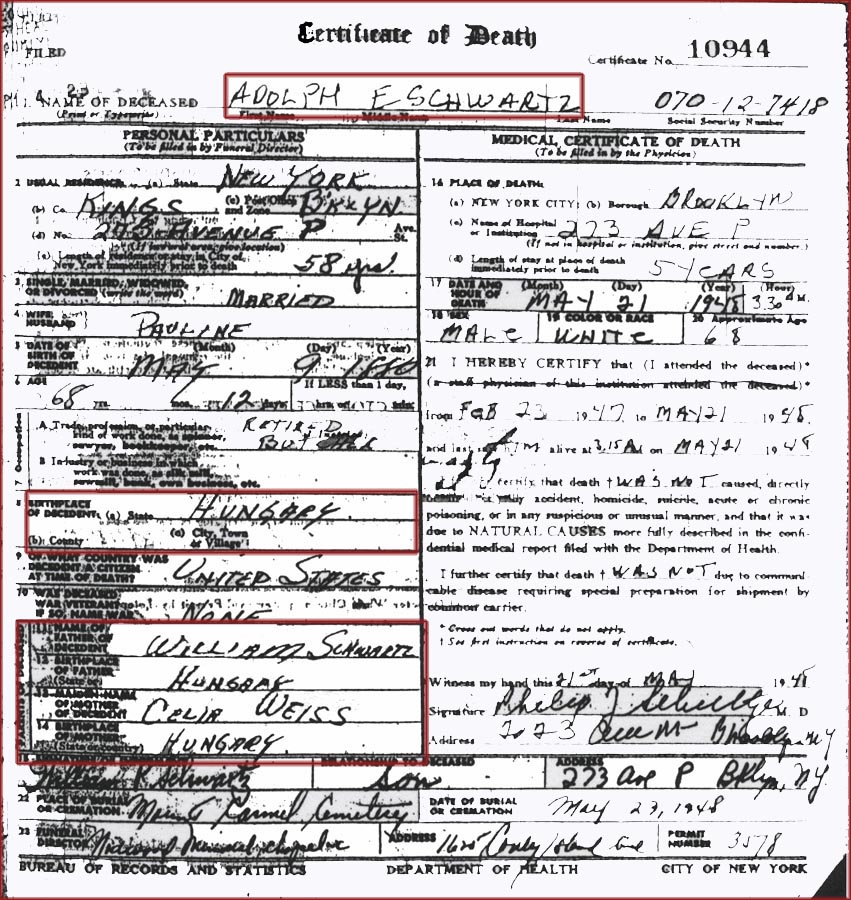 FILED
Certificate of Death
Certificate No. 10944
1. NAME OF DECEASED ADOLPH E SCHWARTZ 070-12-7418
(Print or Typewrite) First Name Middle Name Last Name Social Security Number
PERSONAL PARTICULARS
(To be filled in by Funeral Director)
2 USUAL RESIDENCE: (a) State NEW YORK
(b) Co. KINGS (c) Post Office and Zone BKLYN.
(d) No. AVENUE P Ave. St.
(If in rural area, give location)
(e) Length of residence or stay in City of New York immediately prior to death 58 yrs.
3 SINGLE, MARRIED, WIDOWED, OR DIVORCED (write the word) MARRIED
4 WIFE HUSBAND PAULINE
5 DATE OF BIRTH OF DECEDENT (Month) (Day) (Year)
MAY 9 1880
6 AGE 68 yrs. mos. 12 days If LESS than 1 day, hrs. or min.
7 Occupation
A. Trade, profession, or particular kind of work done, as spinner, sawyer, bookkeeper, etc. RETIRED BUTCHER
B. Industry or business in which work was done, as silk mill, sawmill, bank, own business, etc.
8 BIRTHPLACE OF DECEDENT: (a) State HUNGARY
(b) County (c) City, Town or Village
9 OF WHAT COUNTRY WAS DECEDENT A CITIZEN AT TIME OF DEATH? UNITED STATES
10 WAS DECEASED WAR VETERAN IF SO, NAME WAR NONE
11 NAME OF FATHER OF DECEDENT WILLIAM SCHWARTZ
12 BIRTHPLACE OF FATHER (State or HUNGARY
13 MAIDEN NAME OF MOTHER OF DECEDENT CELIA WEISS
14 BIRTHPLACE OF MOTHER (State or country) HUNGARY.
MEDICAL CERTIFICATE OF DEATH
(To be filled in by the Physician)
16 PLACE OF DEATH:
(a) NEW YORK CITY: (b) Borough BROOKLYN
(c) Name of Hospital or Institution 273 AVE P
(If not in hospital or institution, give street and number.)
(d) Length of stay at place of death immediately prior to death 5 YEARS
17 DATE AND HOUR OF DEATH (Month) (Day) (Year) (Hour)
MAY 21 1948 3.30 A M.
18 SEX 19 COLOR OR RACE 20 Approximate Age
MALE WHITE 68
21 I HEREBY CERTIFY that (I attended the deceased)*
(a staff physician of this institution attended the deceased)*
from FEB 23 1947 to MAY 21 1948.
and last saw him alive at 3.15A M on MAY 21 1948
I certify that death † WAS NOT caused, directly
or indirectly by accident, homicide, suicide, acute or chronic
poisoning, or in any suspicious or unusual manner, and that it was
due to NATURAL CAUSES more fully described in the confi-
dential medical report filed with the Department of Health.
I further certify that death † WAS NOT due to communi-
cable disease requiring special preparation for shipment by
common carrier.
* Cross out words that do not apply.
† See first instruction on reverse of certificate.
Witness my hand this 21st day of MAY 1948
Signature Philip M. D
Address 2023 Ave M Brooklyn NY
RELATIONSHIP TO DECEASED ADDRESS
William Schwartz Son 273 Ave P Bklyn, NY
22 PLACE OF BURIAL OR CREMATION Mount Carmel Cemetery DATE OF BURIAL OR CREMATION May 23, 1948
23 FUNERAL DIRECTOR ADDRESS 1625 Coney Island Ave PERMIT NUMBER 3578
BUREAU OF RECORDS AND STATISTICS DEPARTMENT OF HEALTH CITY OF NEW YORK